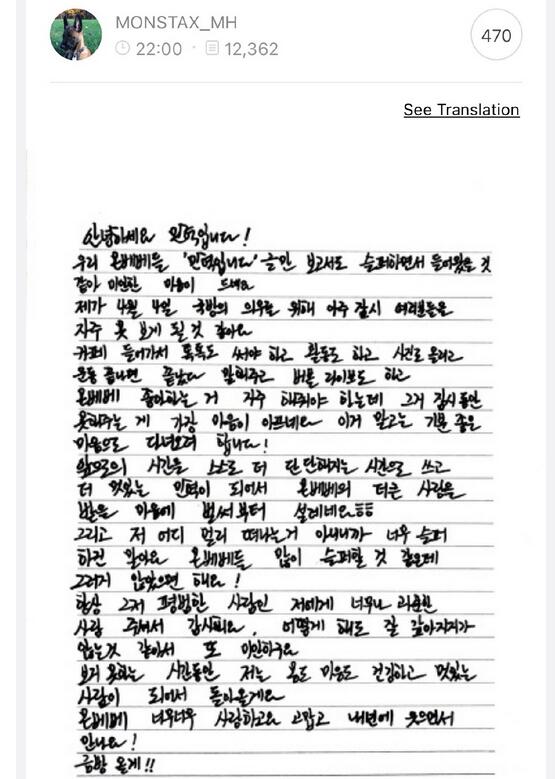 MONSTAX_MH
22:00 · 12,362
470
See Translation
안녕하세요 민혁입니다!
우리 몬베베들 '민혁입니다' 글만 보고서도 슬퍼하면서 들어왔을 것
같아 미안한 마음이 드네요
제가 4월 4일 국방의 의무를 위해 아주 잠시 여러분들을
자주 못 보게 될 것 같아요
카페 들어가서 톡톡도 써야 하고 활동도 하고 사진도 올리고
운동 끝나면 끝났다 말해주고 버블 라이브도 하고
몬베베 좋아하는 거 자주 해줘야 하는데 그거 잠시동안
못해주는 게 가장 마음이 아프네요 이거 말고는 기분 좋은
마음으로 다녀오려 합니다!
앞으로의 시간을 스스로 더 단단해지는 시간으로 쓰고
더 멋있는 민혁이 되어서 몬베베의 더큰 사랑을
받을 마음에 벌써부터 설레네요ㅎㅎ
그리고 저 어디 멀리 떠나는거 아니니까 너무 슬퍼
하진 말아요 몬베베들 많이 슬퍼할 것 같은데
그러지 않았으면 해요!
항상 그저 평범한 사람인 저에게 너무나 과분한
사랑 주셔서 감사해요. 어떻게 해도 잘 갚아지지가
않는것 같아서 또 미안하구요
보지 못하는 시간동안 저는 몸도 마음도 건강하고 멋있는
사람이 되어서 돌아올게요
몬베베 너무너무 사랑하고요 고맙고 내년에 웃으면서
만나요!
금방 올게!!